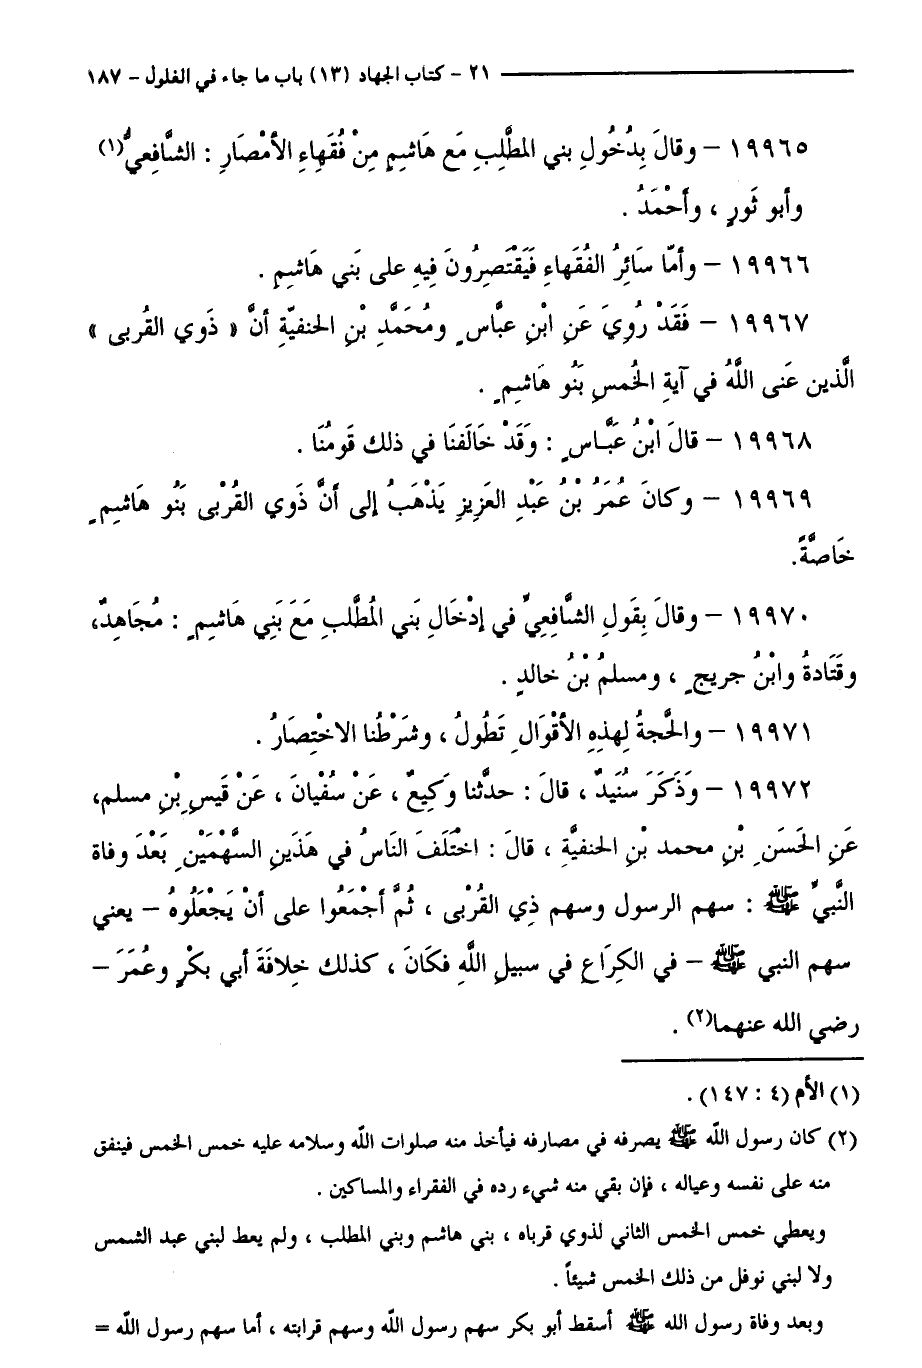 ٢١ – كتاب الجهاد (١٣) باب ما جاء في الغلول – ١٨٧
١٩٩٦٥ – وقالَ بِدُخُولِ بني المطَّلِبِ مَع هَاشِمٍ مِنْ فُقَهِاءِ الأمْصَارِ : الشَّافِعيُّ(١)
وأبو ثَورٍ ، وأحْمَدُ .
١٩٩٦٦ – وأمّا سَائِرُ الفُقَهاءِ فَيَقْتَصِرُونَ فِيهِ على بَني هَاشِمٍ .
١٩٩٦٧ – فَقَدْ رُوِيَ عَنِ ابْنِ عبَّاسٍ ومُحَمَّدِ بْنِ الحنفيّةِ أنَّ « ذَوي القُربى »
الَّذين عَنى اللَّهُ في آيةِ الخُمسِ بَنُو هَاشِمٍ .
١٩٩٦٨ – قالَ ابْنُ عَبَّاسٍ : وَقَدْ خَالَفنَا في ذلك قَومُنَا .
١٩٩٦٩ – وكانَ عُمَرُ بْنُ عَبْدِ العَزِيزِ يَذْهَبُ إلى أنَّ ذَوي القُرْبى بَنُو هَاشِمٍ
خَاصَّةً.
١٩٩٧٠ – وقالَ بِقَولِ الشَّافِعِيِّ في إدْخَالِ بَني المُطَّلب مَعَ بَنِي هَاشِمٍ : مُجَاهِدٌ،
وقَتَادةُ وابْنُ جريجٍ ، ومسلمُ بْنُ خالدٍ .
١٩٩٧١ – والحَّجةُ لِهذِهِ الأقْوَالِ تَطُولُ ، وشَرْطُنا الاخْتِصَارُ .
١٩٩٧٢ – وَذَكَرَ سُنَيدٌ ، قالَ : حدَّثنا وَكِيعٌ ، عَنْ سُفْيانَ ، عَنْ قَيسِ بْنِ مسلم،
عَنِ الحَسَنِ بْنِ محمد بْنِ الحنفيَّةِ ، قالَ : اخْتَلَفَ النَاسُ في هَذَينِ السَّهْمَيْنِ بَعْدَ وفاة
النَّبيِّ ﷺ : سهم الرسول وسهم ذِي القُرْبى ، ثُمَّ أجْمَعُوا على أنْ يَجْعَلُوهُ – يعني
سهم النبي ﷺ – في الكِرَاعِ في سبيلِ اللَّهِ فكَانَ ، كذلك خِلافَةَ أبي بكْرٍ وعُمَرَ –
رضي الله عنهما(٢) .
(١) الأم (٤ : ١٤٧) .
(٢) كان رسول اللّه ﷺ يصرفه في مصارفه فيأخذ منه صلوات اللّه وسلامه عليه خمس الخمس فينفق
منه على نفسه وعياله ، فإن بقي منه شيء رده في الفقراء والمساكين .
ويعطي خمس الخمس الثاني لذوي قرباه ، بني هاشم وبني المطلب ، ولم يعط لبني عبد الشمس
ولا لبني نوفل من ذلك الخمس شيئاً .
وبعد وفاة رسول الله ﷺ أسقط أبو بكر سهم رسول اللّه وسهم قرابته ، أما سهم رسول اللّه =